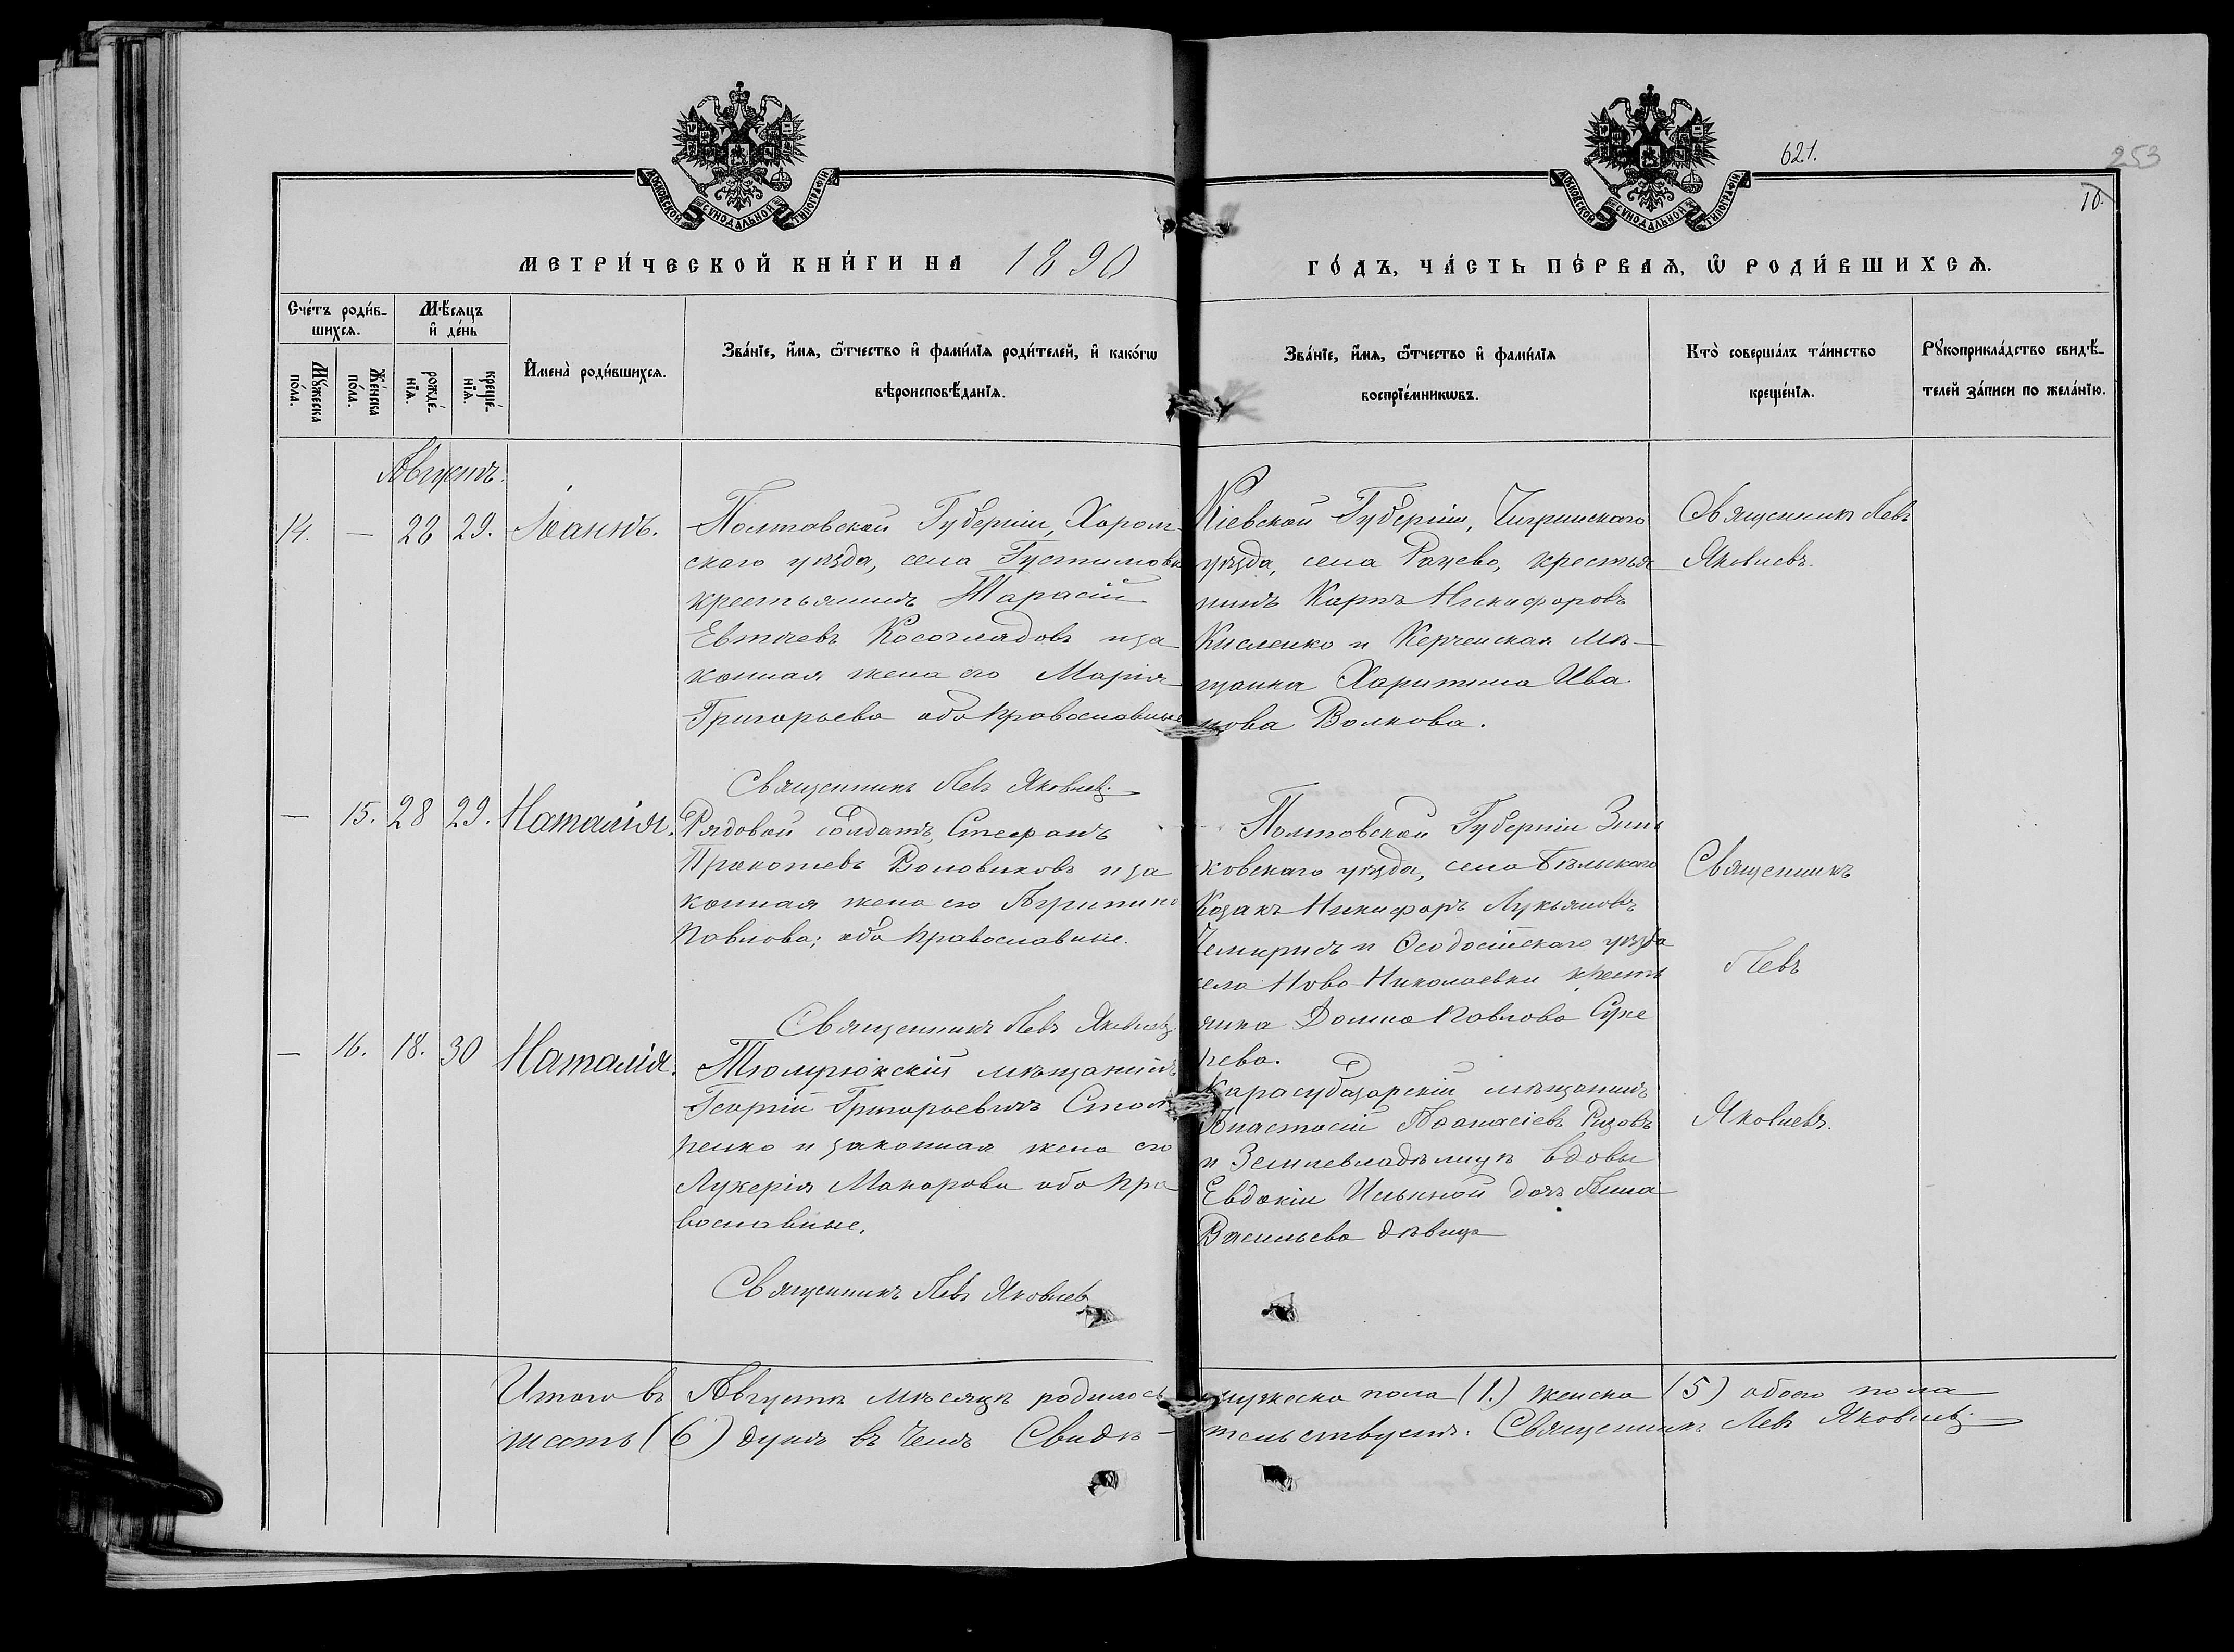 621.
253
10.
МОСКОВСКОЙ СѴНОДАЛЬНОЙ ТИПОГРАФІИ
МОСКОВСКОЙ СѴНОДАЛЬНОЙ ТИПОГРАФІИ
МЕТРИ́ЧЕСКОЙ КНИ́ГИ НА 1890
ГО́ДЪ, ЧА́СТЬ ПЕ́РВАѦ, Ѡ҆ РОДИ́ВШИХСѦ.
Сче́тъ роди́в-
шихсѧ.
Мꙋ́жеска по́ла.
Же́нска по́ла.
Мѣ́сѧцъ
и҆ де́нь
рожде́-
нїѧ.
креще́-
нїѧ.
И҆мена̀ роди́вшихсѧ.
Зва́нїе, и҆́мѧ, ѻ҆́тчество и҆ фамилїѧ роди́телей, и҆ како́гѡ
вѣроисповѣ́данїѧ.
Зва́нїе, и҆́мѧ, ѻ҆́тчество и҆ фами́лїѧ
воспрїе́мникѡвъ.
Кто̀ соверша́лъ та́инство
креще́нїѧ.
Рꙋкоприкла́дство свидѣ́-
телей за́писи по жела́нїю.
Августъ.
14. — 28 29. Іоаннъ.
Полтавской Губерніи, Хороль-
скаго уѣзда, села Густимовк
крестьянинъ Тарасій
Евтіевъ Косоглядовъ и за
конная жена его Марія
Григорьева оба православные
Священникъ Левъ Яковлевъ.
Кіевской Губерніи, Чигринскаго
уѣзда, села Рацево, крестья
нинъ Карпъ Никифоровъ
Кисленко и Керченская мѣ-
щанка Харитина Ива
нова Волкова.
Священникъ Левъ
Яковлевъ.
— 15. 28 29. Наталія.
Рядовой солдатъ, Стефанъ
Прокопіевъ Воловиковъ и за
конная жена его Агрипина
Павлова; оба православные.
Священникъ Левъ Яковлевъ.
Полтавской Губерніи Зинь
ковскаго уѣзда, села Бѣльскаго
Козакъ Никифоръ Лукьяновъ
Чемирисъ и Ѳеодосійскаго уѣзда
села Ново-Николаевки крестъ
янка Домна Павлова Сухе
рева.
Священникъ
Левъ
Яковлевъ.
— 16. 18. 30 Наталія.
Тюмрюкскій мѣщанинъ
Георгій Григорьевичъ
и законная жена его
Лукерія Макарова оба пра
вославные.
Священникъ Левъ Яковлев
Карасубазарскій мѣщанинъ
Анастасій Аѳанасіевъ Ризовъ
и Землевладѣлицы вдовы
Евдокіи Ильиной дочь Анна
Васильева дѣвица
Итого въ Августѣ мѣсяцѣ родилось мужеска пола (1.) женска (5) обоего пола
шесть (6) душъ въ чемъ Свидѣ-тельствуетъ. Священникъ Левъ Яковлевъ.